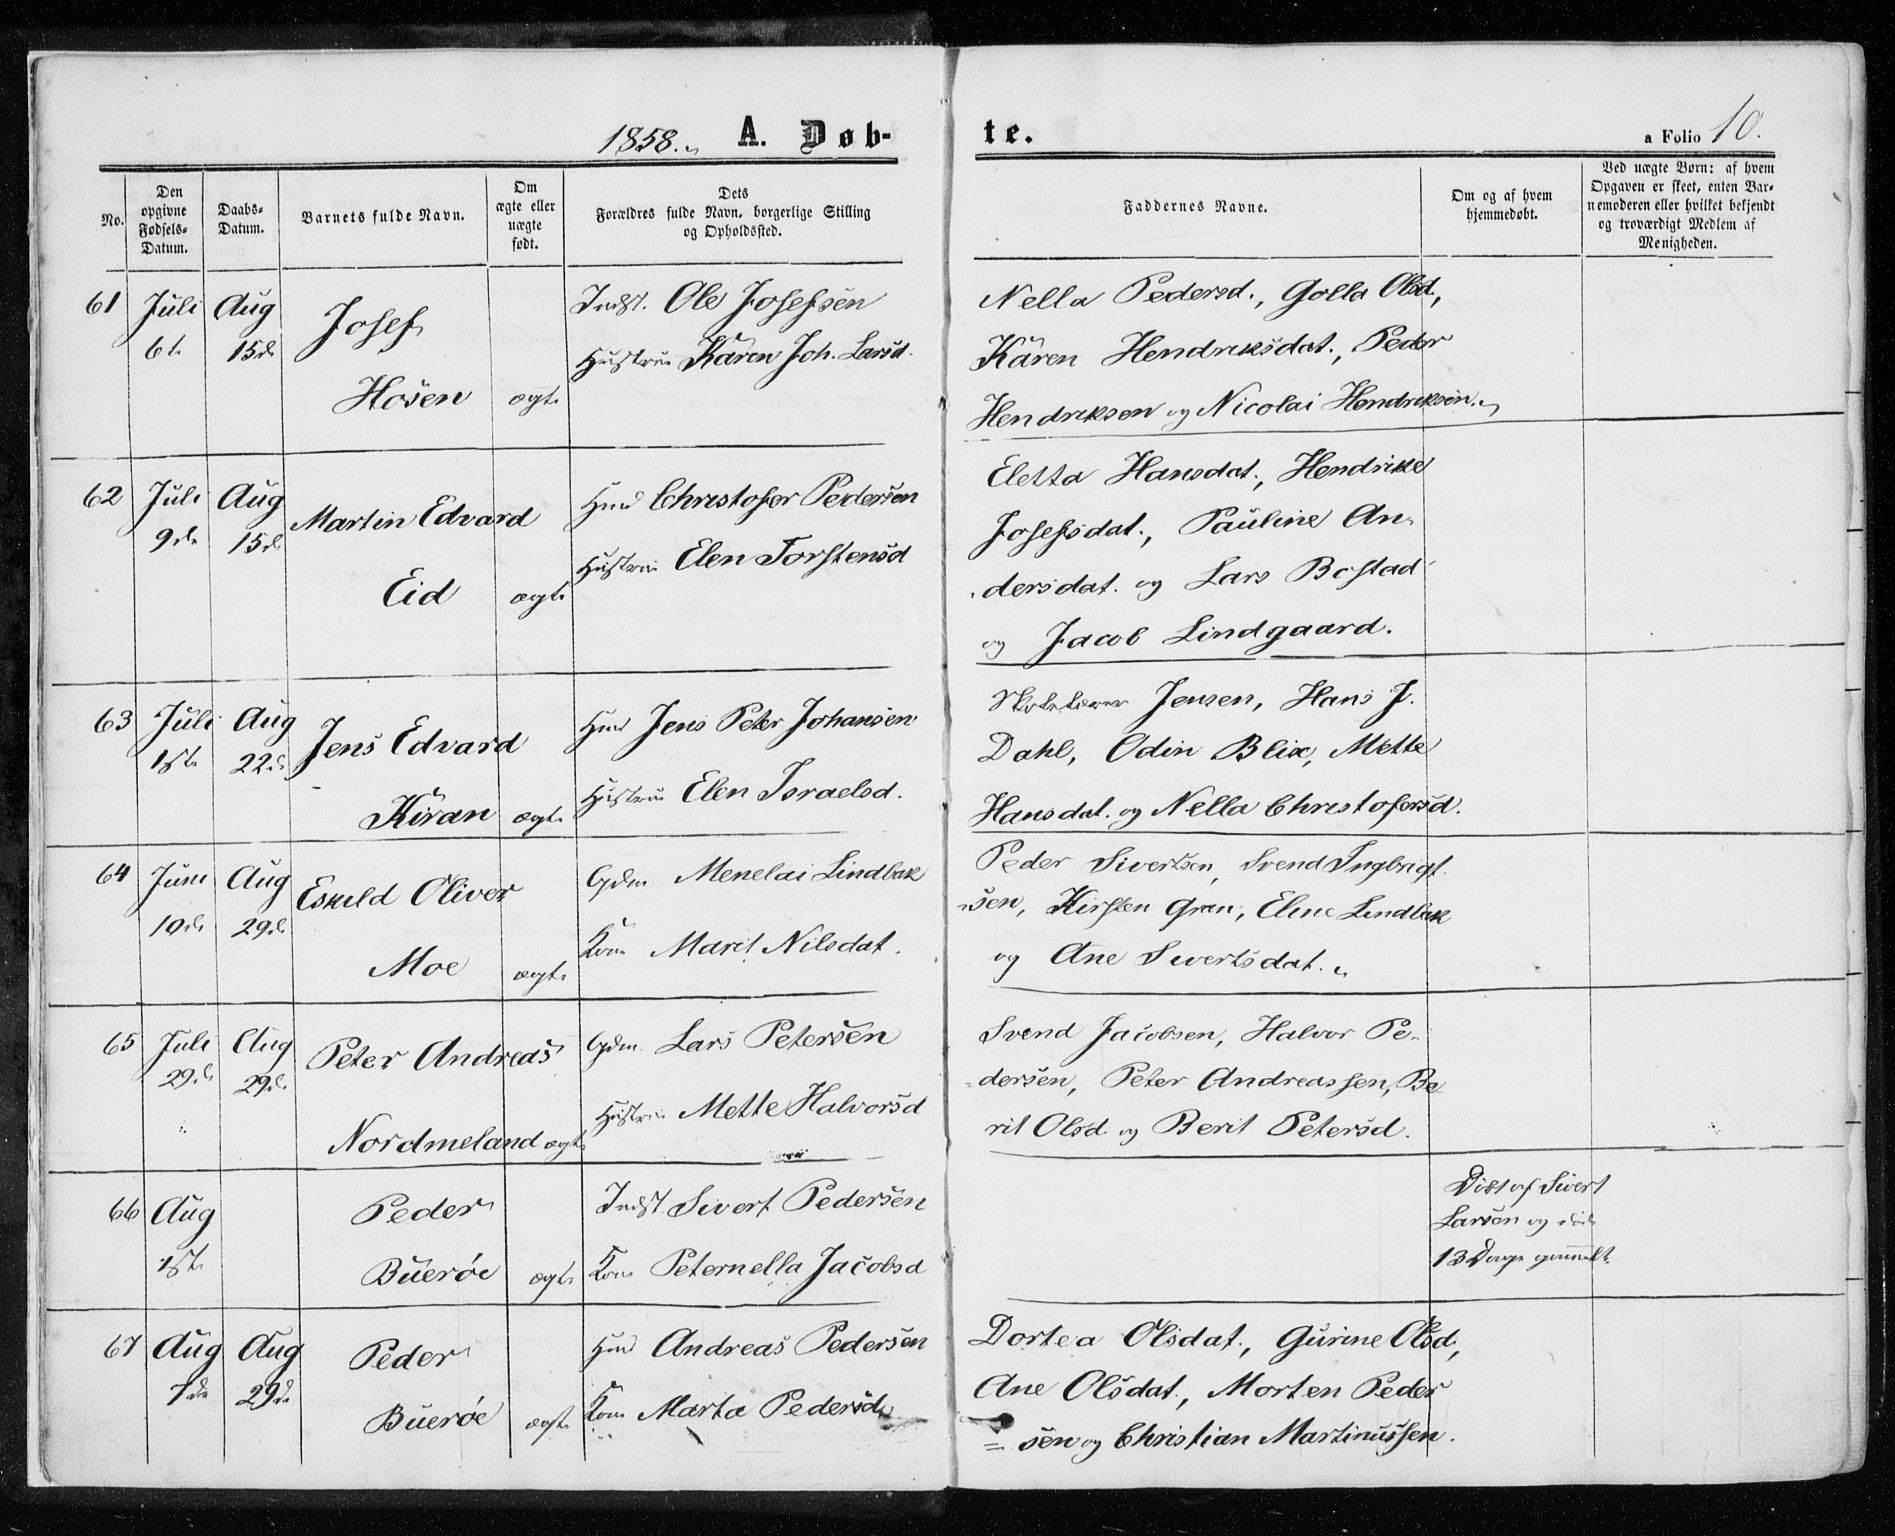 1858. A. Døb-te. a Folio 10.
No.
Den opgivne Fødsels-Datum.
Daabs-Datum.
Barnets fulde Navn.
Om ægte eller uægte født.
Dets Forældres fulde Navn, borgerlige Stilling og Opholdssted.
Faddernes Navne.
Om og af hvem hjemmedøbt.
Ved uægte Børn: af hvem Opgaven er skeet, enten Barnemoderen eller hvilket bekjendt og troværdigt Medlem af Menigheden.
61 Juli Aug Josef Indst. Ole Josefsen
6te 15de Hustrue Karen Joh. Larsd.
Hosen ægte
Nella Pedersd., Golla Olsd.,
Karen Hendriksdat., Peder
Hendriksen og Nicolai Hendriksen.
62 Juli Aug Martin Edvard Huus Christofer Pedersen
9de 15de Hustrue Elen Torstensd
Eid ægte
Eletta Hansdat., Hendrikke
Josefsdat., Pauline An-
dersdat. og Lars Bostad
og Jacob Lindgaard.
63 Juli Aug Jens Edvard Huus Jens Peter Johansen
1ste 22de Hustrue Elen Israelsd.
Kiran ægte
Skolelærer Jensen, Hans J.
Dahl, Odin Blix, Mette
Hansdat. og Nella Christofersd.
64 Juni Aug Eskild Oliver Gdm Menelai Lindbak
10de 29de Kone Marit Nilsdat.
Moe ægte
Peder Sivertsen, Svend Ingbrigt-
sen, Kirsten Gran, Eline Lindbak
og Ane Sivertsdat.
65 Juli Aug Peter Andreas Gdm. Lars Petersen
29de 29de Hustrue Mette Halvorsd
Nordmeland ægte
Svend Jacobsen, Halvor Pe-
dersen, Peter Andreassen, Be-
rit Olsd. og Berit Petersd.
66 Aug Peder Indst Sivert Pedersen
1ste Buerøe ægte Kone Peternella Jacobsd
Døbt af Sivert
Larsen og døde
13 Dage gammelt.
67 Aug Aug Peder Huus Andreas Pedersen
7de 29de Buerøe ægte Kone Marta Pedersd.
Dortea Olsdat., Gurine Olsd.,
Ane Olsdat., Morten Peder
= sen og Christian Martinussen.